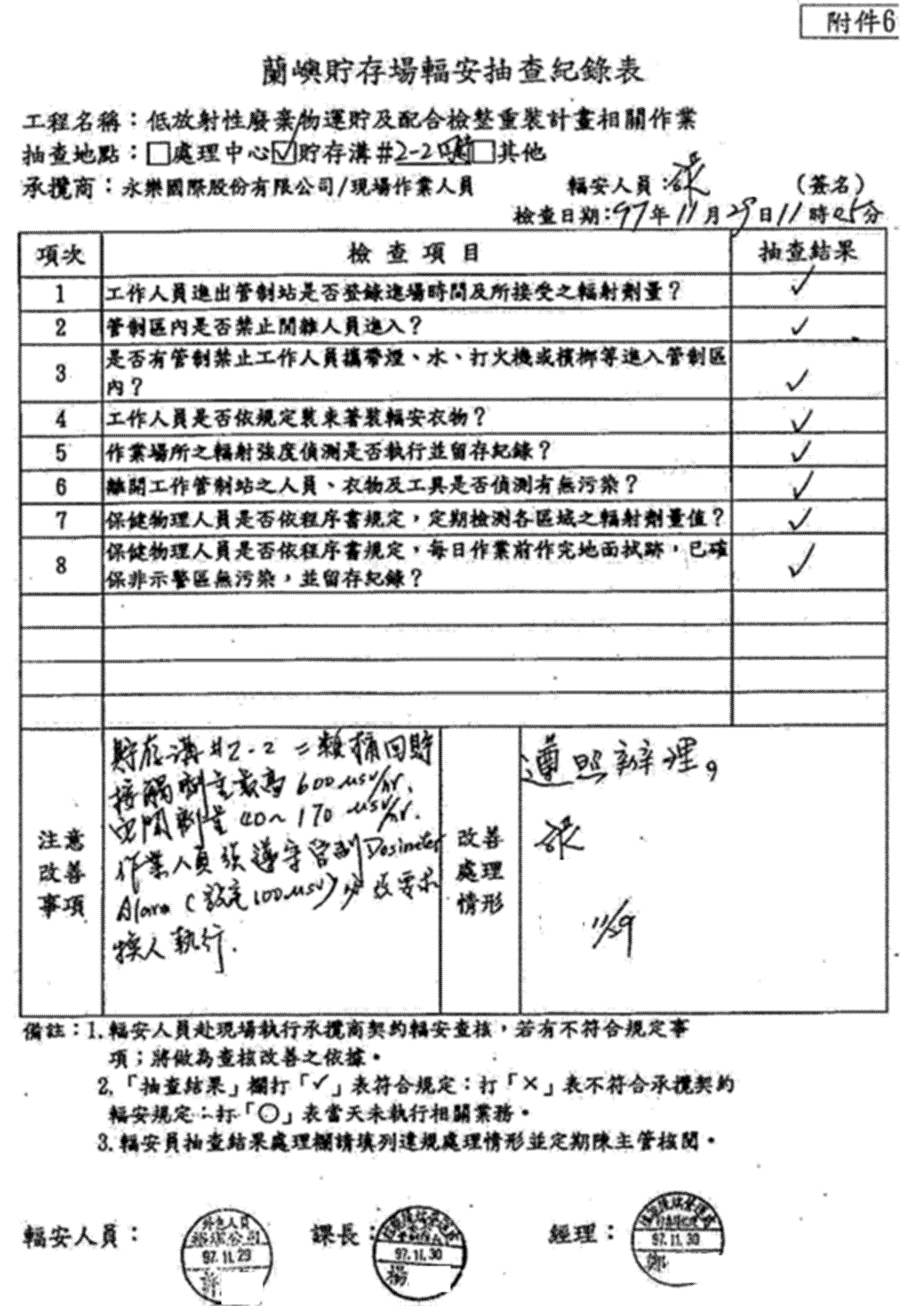 附件6
蘭嶼貯存場輻安抽查紀錄表
工程名稱：低放射性廢棄物運貯及配合檢整重裝計畫相關作業
抽查地點：□處理中心☑貯存溝#2-2 □其他
承攬商：永樂國際股份有限公司/現場作業人員 輻安人員：張 （簽名）
檢查日期：97年11月29日11時05分
項次 檢查項目 抽查結果
1 工作人員進出管制站是否登錄進場時間及所接受之輻射劑量？ ✓
2 管制區內是否禁止閒雜人員進入？ ✓
3 是否有管制禁止工作人員攜帶煙、水、打火機或檳榔等進入管制區
內？ ✓
4 工作人員是否依規定裝束著裝輻安衣物？ ✓
5 作業場所之輻射強度偵測是否執行並留存紀錄？ ✓
6 離開工作管制站之人員、衣物及工具是否偵測有無污染？ ✓
7 保健物理人員是否依程序書規定，定期檢測各區域之輻射劑量值？ ✓
8 保健物理人員是否依程序書規定，每日作業前作完地面拭跡，已確
保非示警區無污染，並留存紀錄？ ✓
注意
改善
事項
貯存溝#2-2二類桶回貯
接觸劑量最高600μsv/hr.
空間劑量40~170μsv/hr.
作業人員須遵守管制Dosimeter
Alarm（設定100μsv）必要求
換人執行.
改善
處理
情形
遵照辦理。
張
11/29
備註：1.輻安人員赴現場執行承攬商契約輻安查核，若有不符合規定事
項；將做為查核改善之依據。
2.「抽查結果」欄打「✓」表符合規定：打「×」表不符合承攬契約
輻安規定；打「○」表當天未執行相關業務。
3.輻安員抽查結果處理欄請填列違規處理情形並定期陳主管核閱。
輻安人員： 課長： 經理：
外包人員
97.11.29
許
97.11.30
楊
97.11.30
鄭